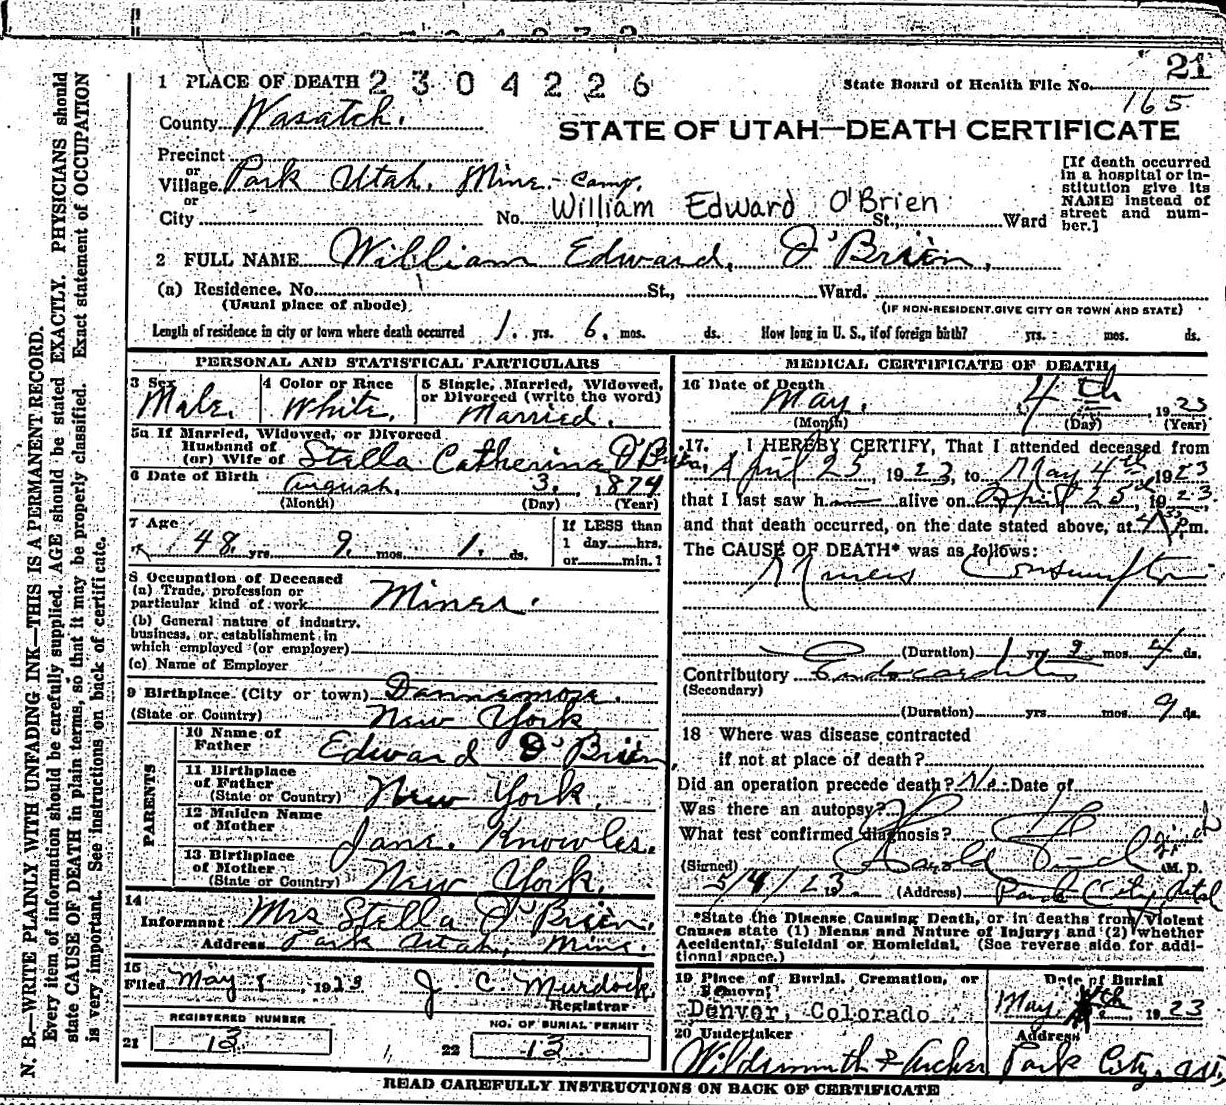 21
1 PLACE OF DEATH 2304226
State Board of Health File No. 165
County Wasatch.
STATE OF UTAH—DEATH CERTIFICATE
Precinct
or
Village Park Utah. Mine-Camp.
or
City No. William Edward O'Brien St., Ward
[If death occurred in a hospital or institution give its NAME instead of street and number.]
2 FULL NAME William Edward, O'Brien,
(a) Residence. No. St., Ward.
(Usual place of abode)
(IF NON-RESIDENT GIVE CITY OR TOWN AND STATE)
Length of residence in city or town where death occurred 1. yrs. 6. mos. ds. How long in U. S., if of foreign birth? yrs. mos. ds.
PERSONAL AND STATISTICAL PARTICULARS
3 Sex Male.
4 Color or Race White.
5 Single, Married, Widowed, or Divorced (write the word) Married.
5a If Married, Widowed, or Divorced
Husband of
(or) Wife of Stella Catherine O'Brien,
6 Date of Birth August. 3. 1874
(Month) (Day) (Year)
7 Age 48. yrs. 9. mos. 1. ds.
If LESS than
1 day hrs.
or min.?
8 Occupation of Deceased
(a) Trade, profession or
particular kind of work Miner.
(b) General nature of industry,
business, or establishment in
which employed (or employer)
(c) Name of Employer
9 Birthplace (City or town) Dannemora.
(State or Country) New York
PARENTS
10 Name of Father Edward O'Brien,
11 Birthplace of Father
(State or Country) New York.
12 Maiden Name of Mother Jane. Knowles.
13 Birthplace of Mother
(State or Country) New York.
14
Informant Mrs Stella O'Brien.
Address Park Utah, Mine.
15
Filed May 8, 1923 J. C. Murdock
Registrar
REGISTERED NUMBER
21 13
NO. OF BURIAL PERMIT
22 13
MEDICAL CERTIFICATE OF DEATH
16 Date of Death May. 4th 1923
(Month) (Day) (Year)
17. I HEREBY CERTIFY, That I attended deceased from
April 25, 1923, to May 4th 1923
that I last saw h alive on April 25th, 1923,
and that death occurred, on the date stated above, at p.m.
The CAUSE OF DEATH* was as follows:
Miners Consumption
(Duration) 1 yrs. 9 mos. 4 ds.
Contributory Endocarditis
(Secondary)
(Duration) yrs. mos. 9 ds.
18 Where was disease contracted
if not at place of death?
Did an operation precede death? No. Date of
Was there an autopsy?
What test confirmed diagnosis?
(Signed) Harold M. D.
5/4/23. (Address) Park City, Utah
*State the Disease Causing Death, or in deaths from Violent
Causes state (1) Means and Nature of Injury; and (2) whether
Accidental, Suicidal or Homicidal. (See reverse side for addi-
tional space.)
19 Place of Burial, Cremation, or Removal
Denver, Colorado
Date of Burial
May 1923
20 Undertaker
Address
Park City,
READ CAREFULLY INSTRUCTIONS ON BACK OF CERTIFICATE
N. B.—WRITE PLAINLY WITH UNFADING INK—THIS IS A PERMANENT RECORD.
Every item of information should be carefully supplied. AGE should be stated EXACTLY. PHYSICIANS should
state CAUSE OF DEATH in plain terms, so that it may be properly classified. Exact statement of OCCUPATION
is very important. See instructions on back of certificate.